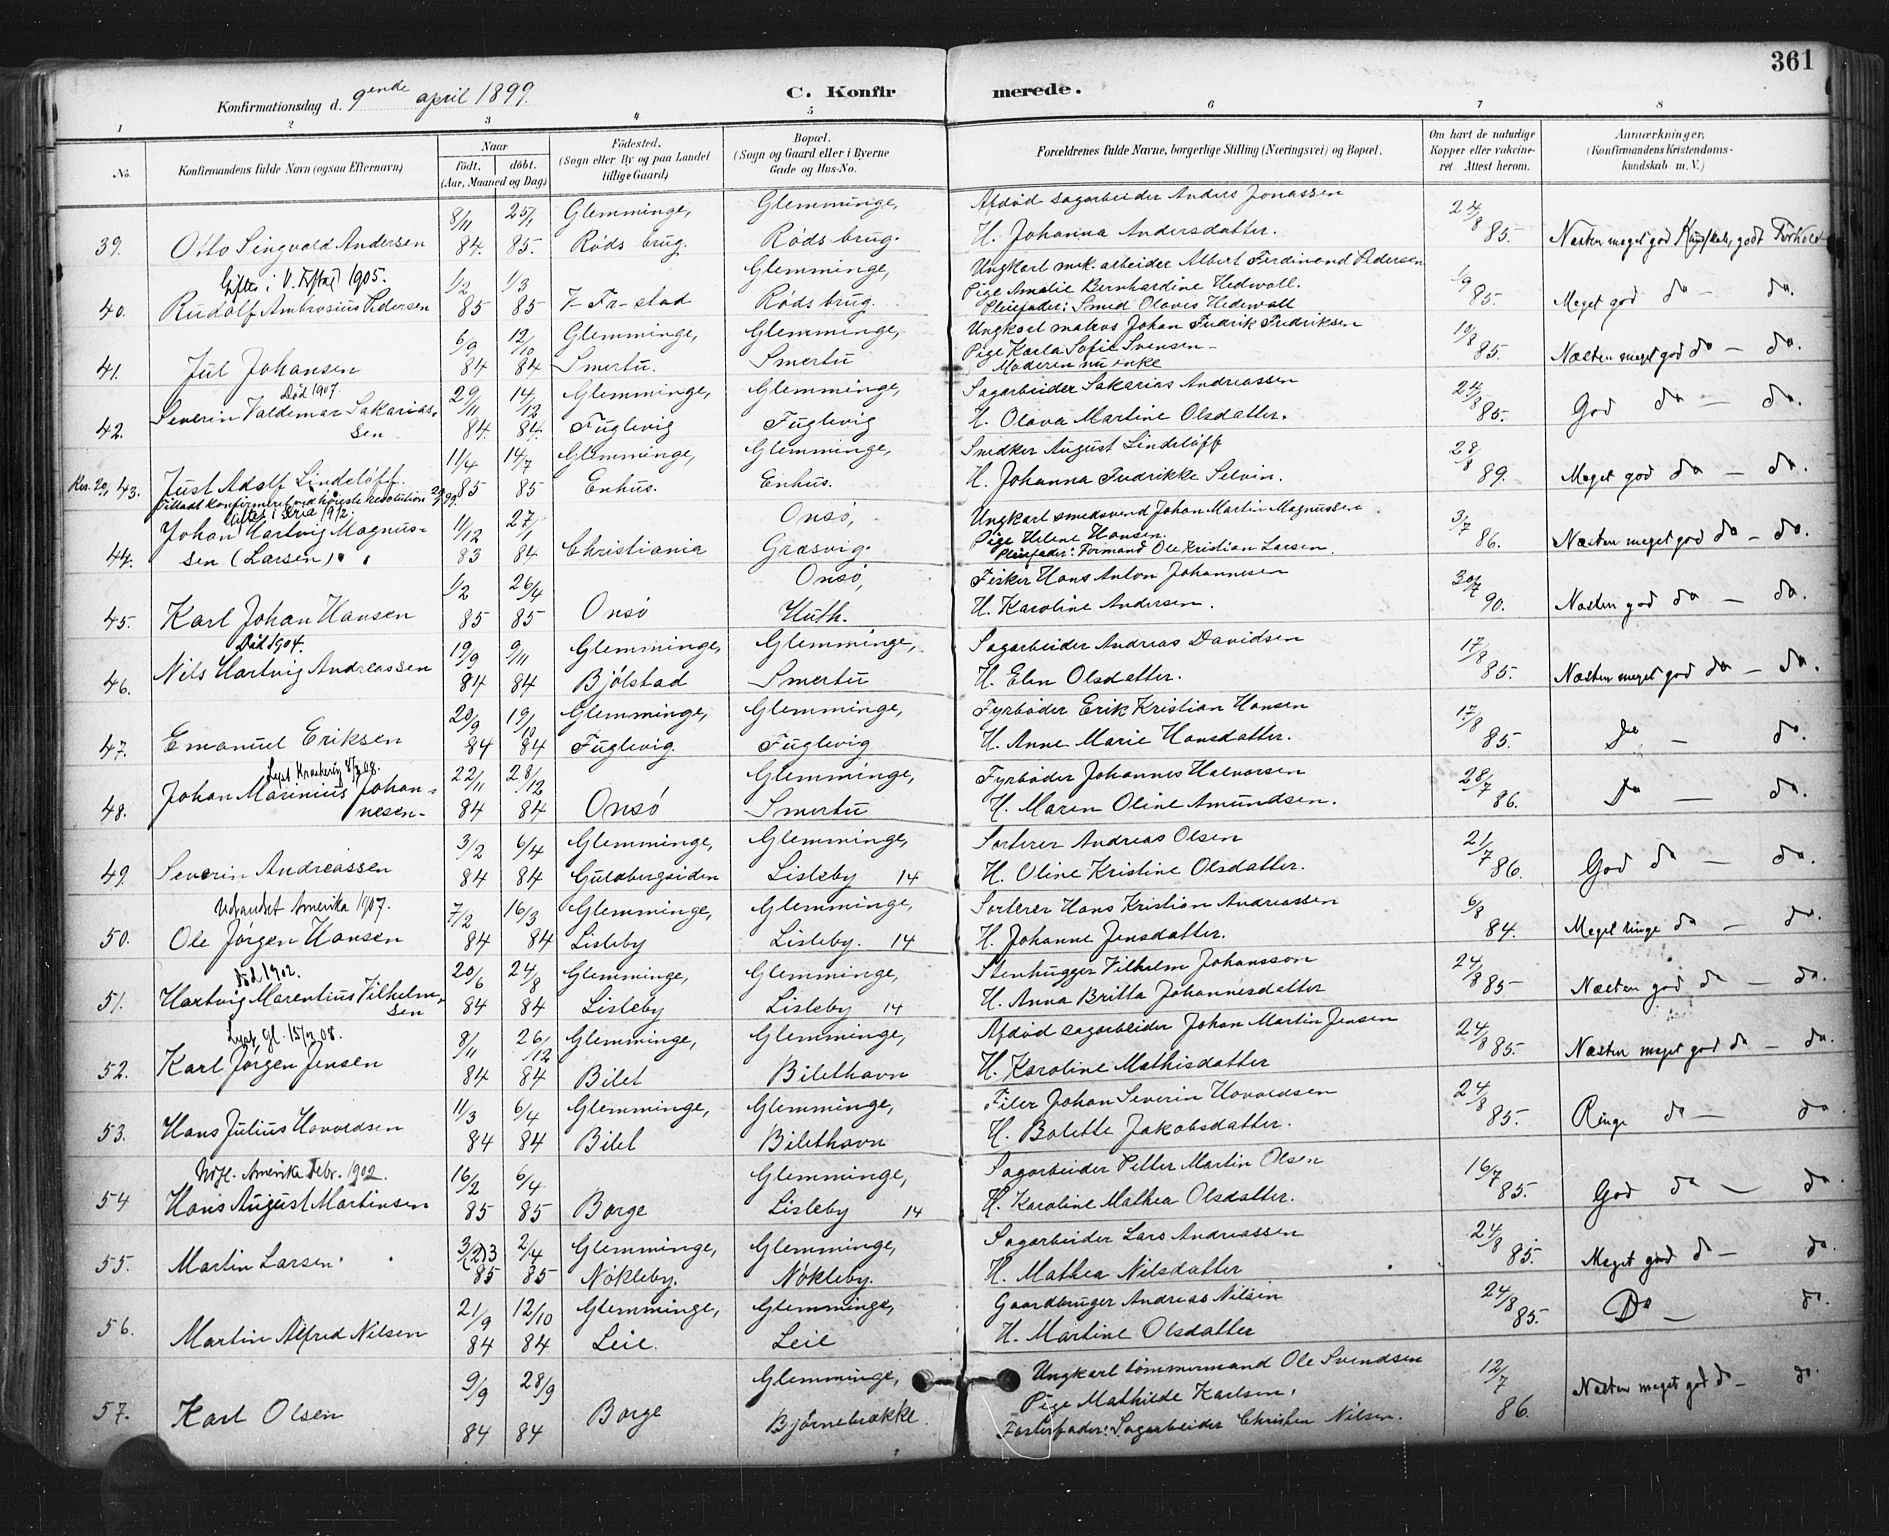 361
Konfirmationsdag d. 9ende april 1899.
C. Konfirmerede.
1 2 3 4 5 6 7 8
No. Konfirmandens fulde Navn (ogsaa Efternavn) Naar født. døbt. (Aar, Maaned og Dag) Fødested. (Sogn eller By og paa Landet tillige Gaard) Bopæl. (Sogn og Gaard eller i Byerne Gade og Hus-No. Forældrenes fulde Navne, borgerlige Stilling (Næringsvei) og Bopæl. Om havt de naturlige Kopper eller vaccineret. Attest herom. Anmærkninger. (Konfirmandens Kristendomskundskab m. V.)
39. Otto Singvald Andersen 8/11 84. 25/1 85. Glemminge, Røds brug. Glemminge, Røds brug. Afdød sagarbeider Anders Jonassen H. Johanna Andersdatter. 24/8 85. Næsten meget god Kundskab, godt Forhold
Gifte i V. Fr.stad 1905.
40. Rudolf Ambrosius Pedersen 1/2 85 1/3 85 V. Fr-stad Glemminge, Røds brug. Ungkarl mek. arbeider Albert Ferdinand Pedersen Pige Amalie Bernhardine Hedevall. Pleiefader: Smed Olaves Hedevall 1/9 85. Meget god do - do.
41. Jul Johansen 6/9 84 12/10 84 Glemminge, Smertu. Glemminge, Smertu Ungkarl matros Johan Fredrik Fredriksen Pige Karla Sofie Svensen - Moderen nu enke 19/8 85. Næsten meget god do - do.
Død 1907.
42. Severin Valdemar Sakariassen 29/11 84. 14/12 84. Glemminge, Fuglevig Glemminge, Fuglevig Sagarbeider Sakarias Andreassen H. Olava Martine Olsdatter. 24/8 85. God do - do.
43. Just Adolf Lindeløff. 11/4 85 14/7 85 Glemminge, Enhus. Glemminge, Enhus. Snedker August Lindeløff H. Johanna Fredrikke Selvin. 28/8 89. Meget god do - do.
Tilladt konfirmeret ved høieste resolution
Giftet i Kria 1912.
44. Johan Hartvig Magnussen (Larsen) 11/12 83 27/1 84 Christiania Onsø, Græsvig. Ungkarl smedsvend Johan Martin Magnussen Pige Helene Hansen. Pleiefader: Formand Ole Kristian Larsen. 3/7 86. Næsten meget god do - do.
45. Karl Johan Hansen 1/2 85 26/4 85 Onsø Onsø, Huth. Fisker Hans Anton Johannesen H. Karoline Andersen. 30/7 90. Næsten god do - do.
Død 1904.
46. Nils Hartvig Andreassen 19/9 84 9/11 84 Glemminge, Bjølstad Glemminge, Smertu Sagarbeider Andreas Davidsen H. Elen Olsdatter. 17/8 85. Næsten meget god do - do.
47. Emanuel Eriksen 20/9 84 19/10 84 Glemminge, Fuglevig. Glemminge, Fuglevig Fyrbøder Erik Kristian Hansen H. Anne Marie Hansdatter. 17/8 85. Do - do.
48. Johan Marinius Johannesen. 22/11 84 28/12 84 Onsø Glemminge, Smertu Fyrbøder Johannes Halvorsen H. Maren Oline Amundsen. 28/7 86. Do - do.
49. Severin Andreassen 3/2 84 6/4 84 Glemminge, Guldbergsiden Glemminge, Lisleby 14 Sorterer Andreas Olsen H. Oline Kristine Olsdatter. 21/7 86. God do - do.
Udvandret Amerika 1907.
50. Ole Jørgen Hansen 7/2 84 16/3 84 Glemminge, Lisleby Glemminge, Lisleby. 14 Sorterer Hans Kristian Andreassen H. Johanne Jensdatter. 6/8 84. Meget ringe do - do.
Død 1902.
51. Hartvig Marentius Vilhelmsen 20/6 84 24/8 84 Glemminge, Lisleby Glemminge, Lisleby 14 Stenhugger Vilhelm Johansson H. Anna Britta Johannesdatter 24/8 85. Næsten god do - do.
Lyst Gl. 15/12 08.
52. Karl Jørgen Jensen 8/11 84 26/12 84 Glemminge, Bilet Glemminge, Bilethavn Afdød sagarbeider Johan Martin Jensen H. Karoline Mathisdatter 24/8 85. Næsten meget god do - do.
53. Hans Julius Havoldsen 11/3 84 6/4 84 Glemminge, Bilet Glemminge, Bilethavn Filer Johan Severin Havoldsen H. Bolette Jakobsdatter. 24/8 85. Ringe do - do.
Udfl. Amerika Febr. 1902.
54 Hans August Martinsen 16/2 85 6/4 85 Borge Glemminge, Lisleby 14 Sagarbeider Petter Martin Olsen H. Karoline Mathea Olsdatter. 16/7 85. God do - do.
55. Martin Larsen 3/(2)3 85 2/4 85 Glemminge, Nøkleby. Glemminge, Nøkleby. Sagarbeider Lars Andreassen H. Mathea Nilsdatter 24/8 85. Meget god do - do.
56. Martin Alfred Nilsen 21/9 84 12/10 84 Glemminge, Leie. Glemminge, Leie Gaardbruger Andreas Nilsen H. Martine Olsdatter 24/8 85. Do - do.
57. Karl Olsen 9/9 84 28/9 84 Borge Glemminge, Bjørnebrække. Ungkarl tømmermand Ole Svendsen Pige Mathilde Karlsen. Fosterfader: Sagarbeider Christen Nilsen. 12/7 86. Næsten meget god do - do.